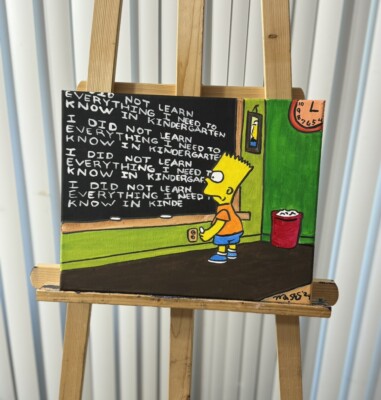 I DID NOT LEARN
EVERYTHING I NEED TO
KNOW IN KINDERGARTEN
I DID NOT LEARN
EVERYTHING I NEED TO
KNOW IN KINDERGARTEN
I DID NOT LEARN
EVERYTHING I NEED TO
KNOW IN KINDERGAR
I DID NOT LEARN
EVERYTHING I NEED
KNOW IN KINDE